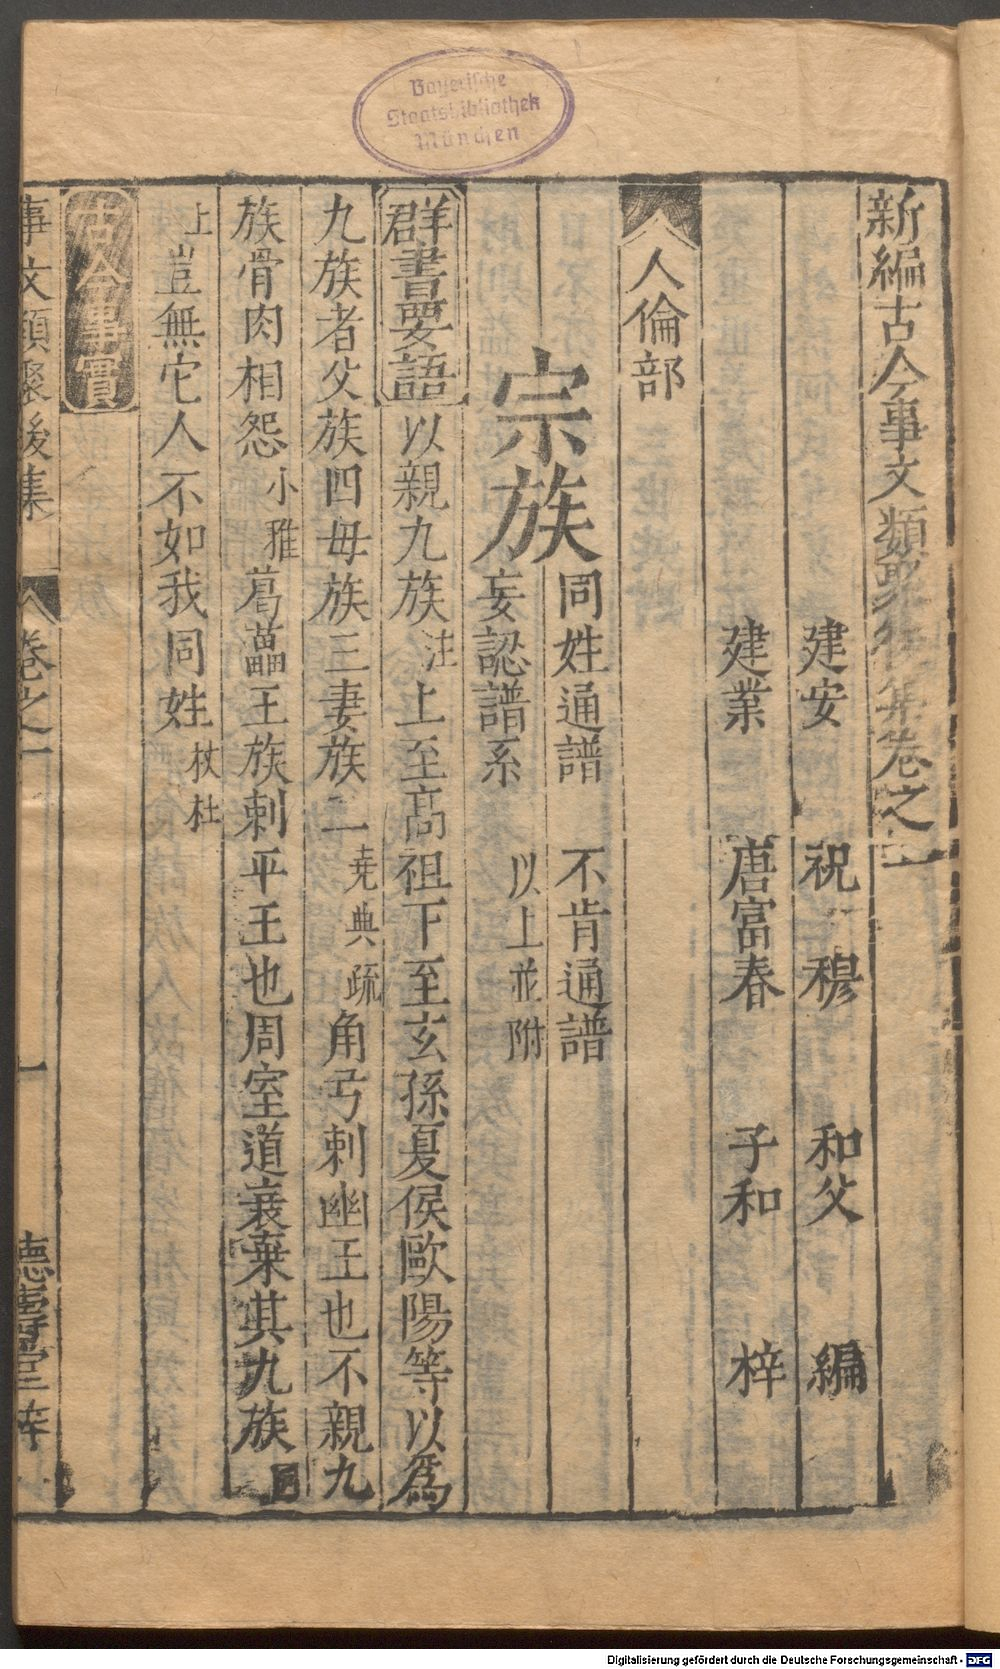 Bayerische
Staatsbibliothek
München
新編古今事文類聚後集卷之一
建安 祝 穆 和父 編
建業 唐富春 子和 梓
人倫部
宗族 同姓通譜 不肯通譜
妄認譜系 以上並附
群書要語 以親九族 注 上至高祖下至玄孫夏侯歐陽等以爲
九族者父族四母族三妻族二 尭典疏 角弓刺幽王也不親九
族骨肉相怨 小雅 葛藟王族刺平王也周室道衰棄其九族
上 豈無它人不如我同姓 杕杜
古今事實
事文類聚後集 卷之一 一 德壽堂梓
Digitalisierung gefördert durch die Deutsche Forschungsgemeinschaft - DFG